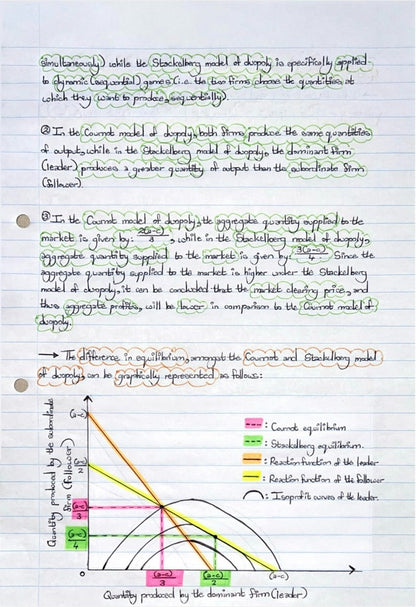 simultaneously) while the Stackelberg model of duopoly is specifically applied
to dynamic (sequential) games (i.e. the two firms choose the quantities at
which they want to produce, sequentially).
② In the Cournot model of duopoly, both firms produce the same quantities
of output, while in the Stackelberg model of duopoly, the dominant firm
(leader) produces a greater quantity of output than the subordinate firm
(follower).
③ In the Cournot model of duopoly, the aggregate quantity supplied to the
market is given by: 2(a-c)/3, while in the Stackelberg model of duopoly,
aggregate quantity supplied to the market is given by: 3(a-c)/4. Since the
aggregate quantity supplied to the market is higher under the Stackelberg
model of duopoly, it can be concluded that the market clearing price, and
thus aggregate profits, will be lower in comparison to the Cournot model of
duopoly.
→ The difference in equilibrium, amongst the Cournot and Stackelberg model
of duopoly, can be graphically represented as follows:
Quantity produced by the subordinate
firm (follower)
(a-c)
(a-c)/2
(a-c)/3
(a-c)/4
: Cournot equilibrium
: Stackelberg equilibrium.
: Reaction function of the leader
: Reaction function of the follower
: Isoprofit curves of the leader.
(a-c)/3
(a-c)/2
(a-c)
Quantity produced by the dominant firm (leader)